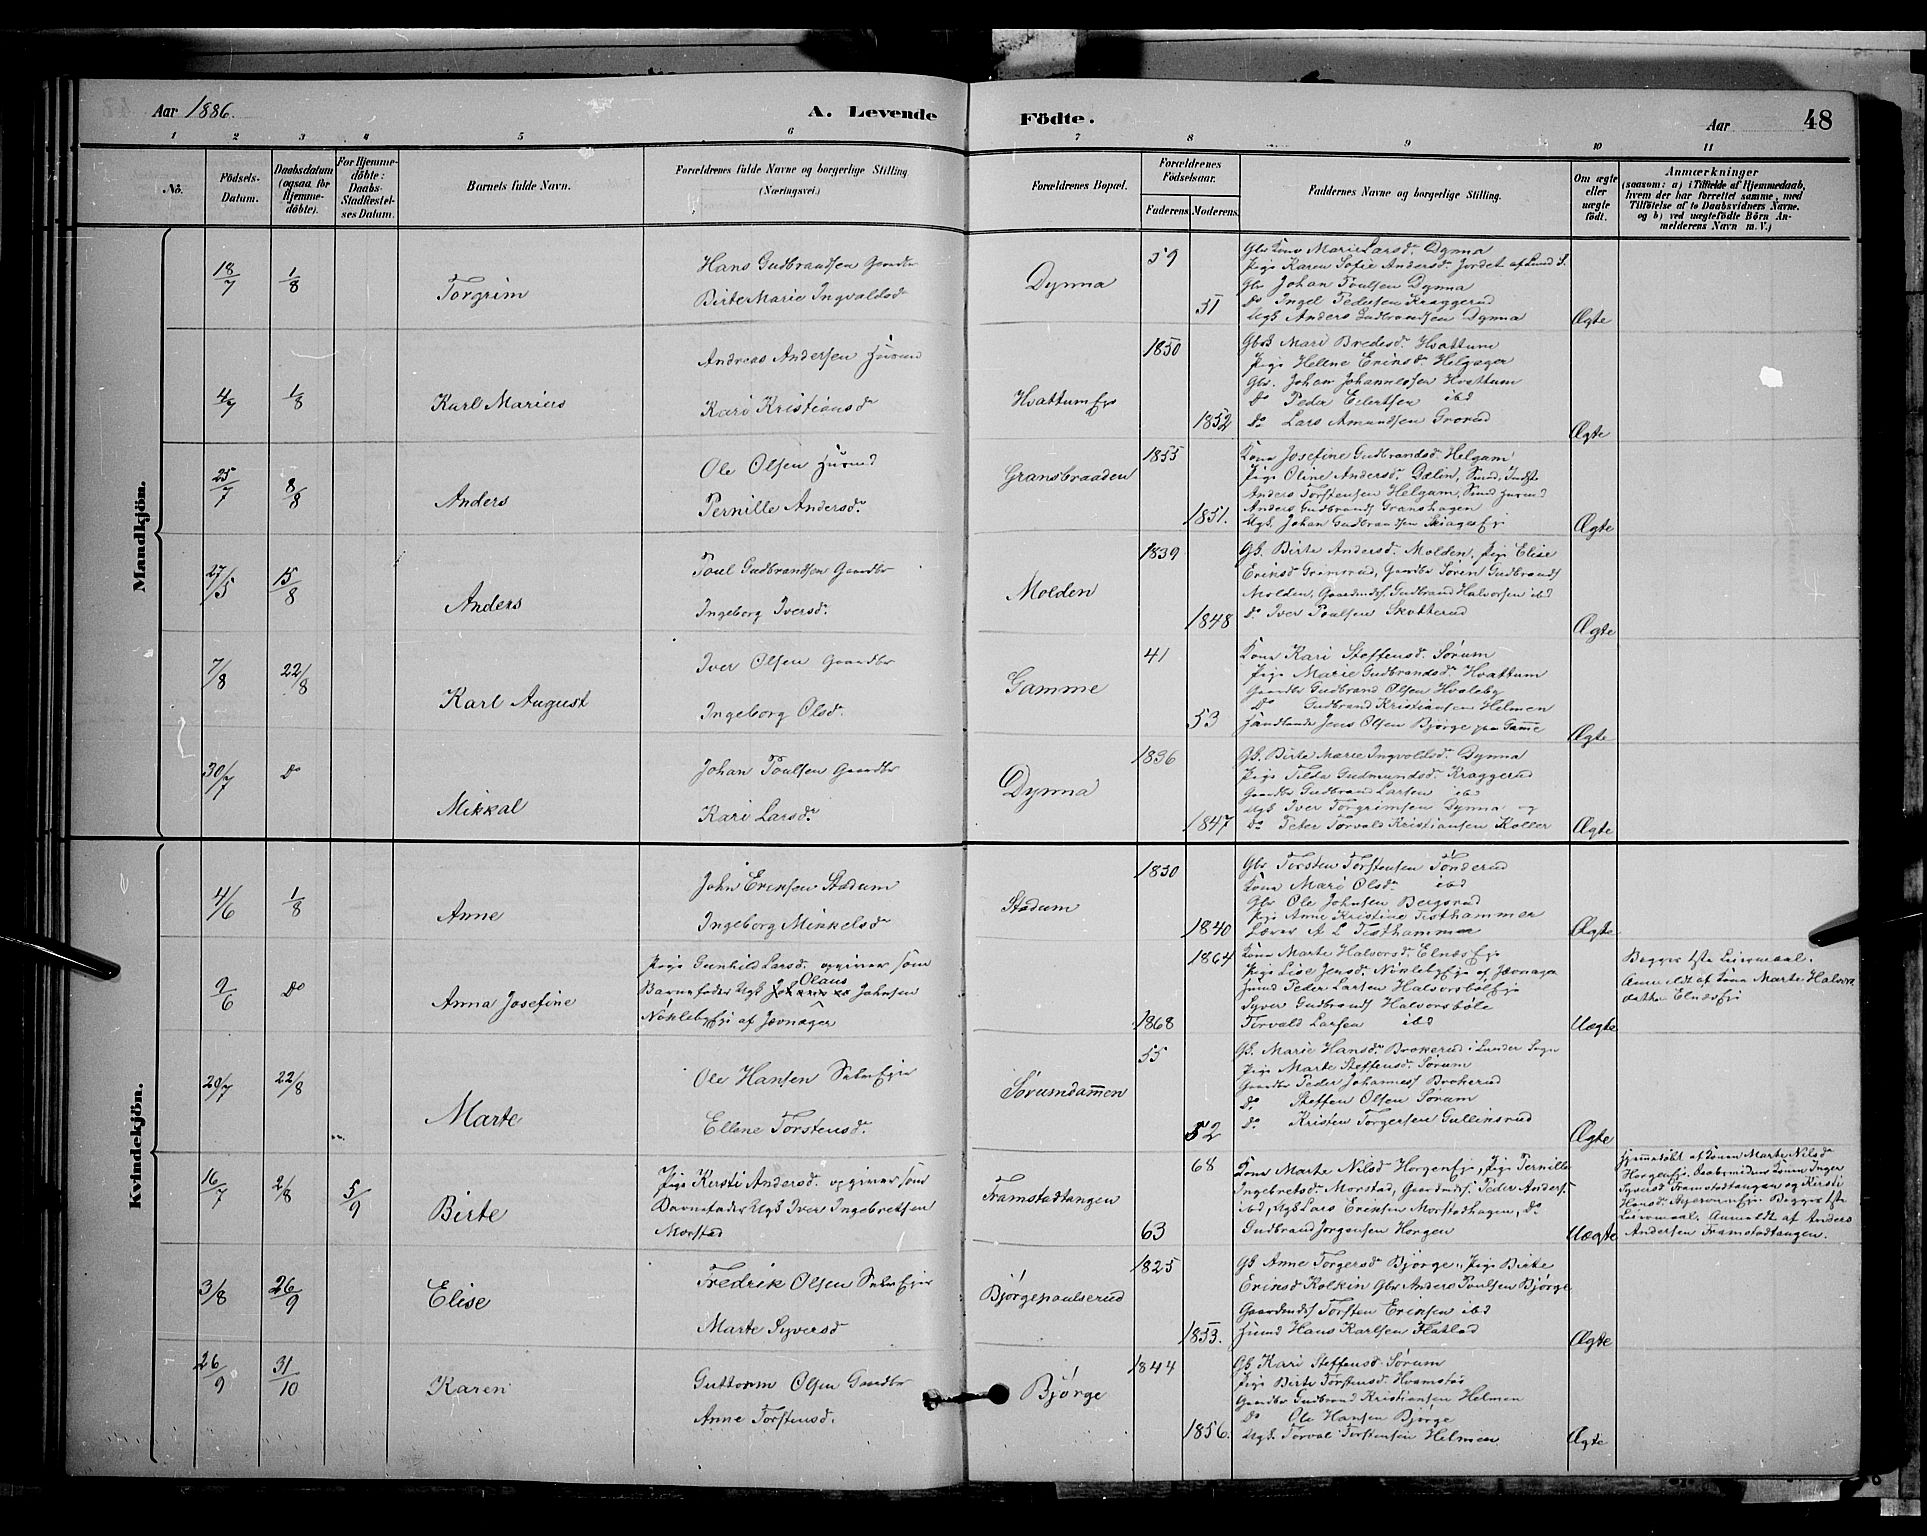 Aar 1886.
A. Levende
Födte.
Aar
48
1 2 3 4 5 6 7 8 9 10 11
No.
Födsels-
Datum.
Daabsdatum
(ogsaa for
Hjemme-
döbte).
For Hjemme-
döbte:
Daabs-
Stadfæstel-
ses Datum.
Barnets fulde Navn.
Forældrenes fulde Navne og borgerlige Stilling
(Næringsvei.)
Forældrenes Bopæl.
Forældrenes
Födselsaar.
Faderens.
Moderens.
Faddernes Navne og borgerlige Stilling.
Om ægte
eller
uægte
födt.
Anmærkninger
(saasom: a) i Tilfælde af Hjemmedaab,
hvem der har forrettet samme, med
Tilföielse af to Daabsvidners Navne.
og b) ved uægtefödte Börn An-
melderens Navn m. V.)
Mandkjön.
18/7
1/8
Torgrim
Hans Gudbrandsen Gaardbr
Birte Marie Ingvaldsdr
Dynna
59
51
Gbr Kona Marie Larsdr Dynna
Pige Karen Sofie Andersdr Jordet af Lund S.
Gbr Johan Poulsen Dynna
Do Ingel Pedersen Kraggerud
Ugk Anders Gudbrandsen Dynna
Ægte
4/7
1/8
Karl Marius
Andreas Andersen Husmd
Kari Kristiansdr
Hvattumeje
1850
1852
GbrK Mari Bredesdr Hvattum
Pige Helene Eriksdr Helgager
Gbr. Johan Johannessen Hvattum
Do Peder Eilertsen ibd
Do Lars Amundsen Grorud
Ægte
25/7
8/8
Anders
Ole Olsen Husmd
Pernille Andersdr
Gransbraaden
1855
1851.
Kona Josefine Gudbrandsdr Helgam
Pige Oline Andersdr Dælin, Smed, Indst
Anders Torstensen Helgam, Smed Husmd
Anders Gudbrands Granshagen
Ugk. Johan Gudbrandsen Skiageseje
Ægte
27/5
15/8
Anders
Poul Gudbrandsen Gaardbr
Ingeborg Iversdr
Molden
1839
1848
GK. Birte Andersdr Molden, Pige Elise
Eriksd Grimsrud, Gaardbr Søren Gudbrands
Molden, Gaardmds Gudbrand Halvorsen ibd
Do Iver Poulsen Skotterud
Ægte
7/8
22/8
Karl August
Iver Olsen Gaardbr
Ingeborg Olsdr
Gamme
41
53
Kona Kari Steffensd. Sørum
Pige Marie Gudbrandsdr Hvattum
Gaardbr Gudbrand Olsen Hvaleby
Do Gudbrand Kristiansen Helmen
Handlende Jens Olsen Bjørge paa Gamme
Ægte
30/7
Do
Mikkal
Johan Poulsen Gaardbr
Kari Larsdr
Dynna
1836
1847
GK. Birte Marie Ingvoldsdr Dynna
Pige Tilda Gudmundsdr Kraggerud
Gaardbr Gudbrand Larsen ibd
Ugk Iver Torgrimsen Dynna og
Do Peter Torvald Kristiansen Koller
Ægte
Kvindekjön.
4/6
1/8
Anne
John Eriksen Stadum
Ingeborg Mikkelsdr
Stadum
1830
1840
Gbr Torsten Torstensen Tønderud
Kona Mari Olsdr ibd
Gbr Ole Johnsen Bergsrud
Pige Anne Kristine Tisthammer
Lærer A L Tisthammer
Ægte
9/6
Do
Anna Josefine
Pige Gunhild Larsd. opgiver som
Olaus
Barnefader Ugk Johannes Johnsen
Nöklebyeje af Jevnager
1864
1868
Kona Marte Halvorsd. Elnæseje
Pige Lise Jensd. Nöklebyeje af Jævnager
Husmd Peder Larsen Halvorsböleje
Syver Gudbrands Halvorsböle
Torvald Larsen ibd
Uægte
Begges 1ste Leiermaal.
Anmeldt af Kona Marte Halvors
datter Elnæseje
20/7
22/8
Marte
Ole Hansen Selveeier
Ellene Torstensdr
Sörumdammen
55
52
GK. Marie Hansdr Brokerud i Lunder Sogn
Pige Marte Steffensd. Sörum
Gaardbr Peder Johanness Brokerud
Do Steffen Olsen Sörum
Do Kristen Torgersen Gullinsrud
Ægte
16/7
2/8
5/9
Birte
Pige Kersti Andersd. opgiver som
Barnefader Ugk Iver Ingebretsen
Morstad
Framstadtangen
68
63
Kona Marte Nilsd Horgeneje, Pige Pernille
Ingebretsdr Morstad, Gaardmds. Peder Anders.
ibd, Ugk Lars Eriksen Morstadhagen, Do
Gudbrand Jorgensen Horgen
Uægte
Hjemmedöbt af Konen Marte Nilsd
Horgeneje. Daabsvidner Konen Inger
Syversd Framstadtangen og Kirsti
Hansd. Begges 1ste
Leiermaal. Anmeldt af Anders
Andersen Framstadtangen.
3/8
26/9
Elise
Fredrik Olsen Selveeier
Marte Syversd
Bjørgepaulserud
1825
1853.
GK Anne Torgersd Bjørge, Pige Birte
Eriksd Kolkin Gbr Anders Poulsen Bjørge
Gaardmds Torsten Eriksen ibd
Husmd Hans Karlsen Flatlad
Ægte
26/9
31/10
Karen
Guttorm Olsen Gaardbr
Anne Torstensd.
Bjørge
1844
1856.
GK Kari Steffensd. Sørum
Pige Birte Torstensd. Hvamstad
Gaardbr Gudbrand Kristiansen Helmen
Do Ole Hansen Bjørge
Ugk. Torval Torstensen Helmen
Ægte